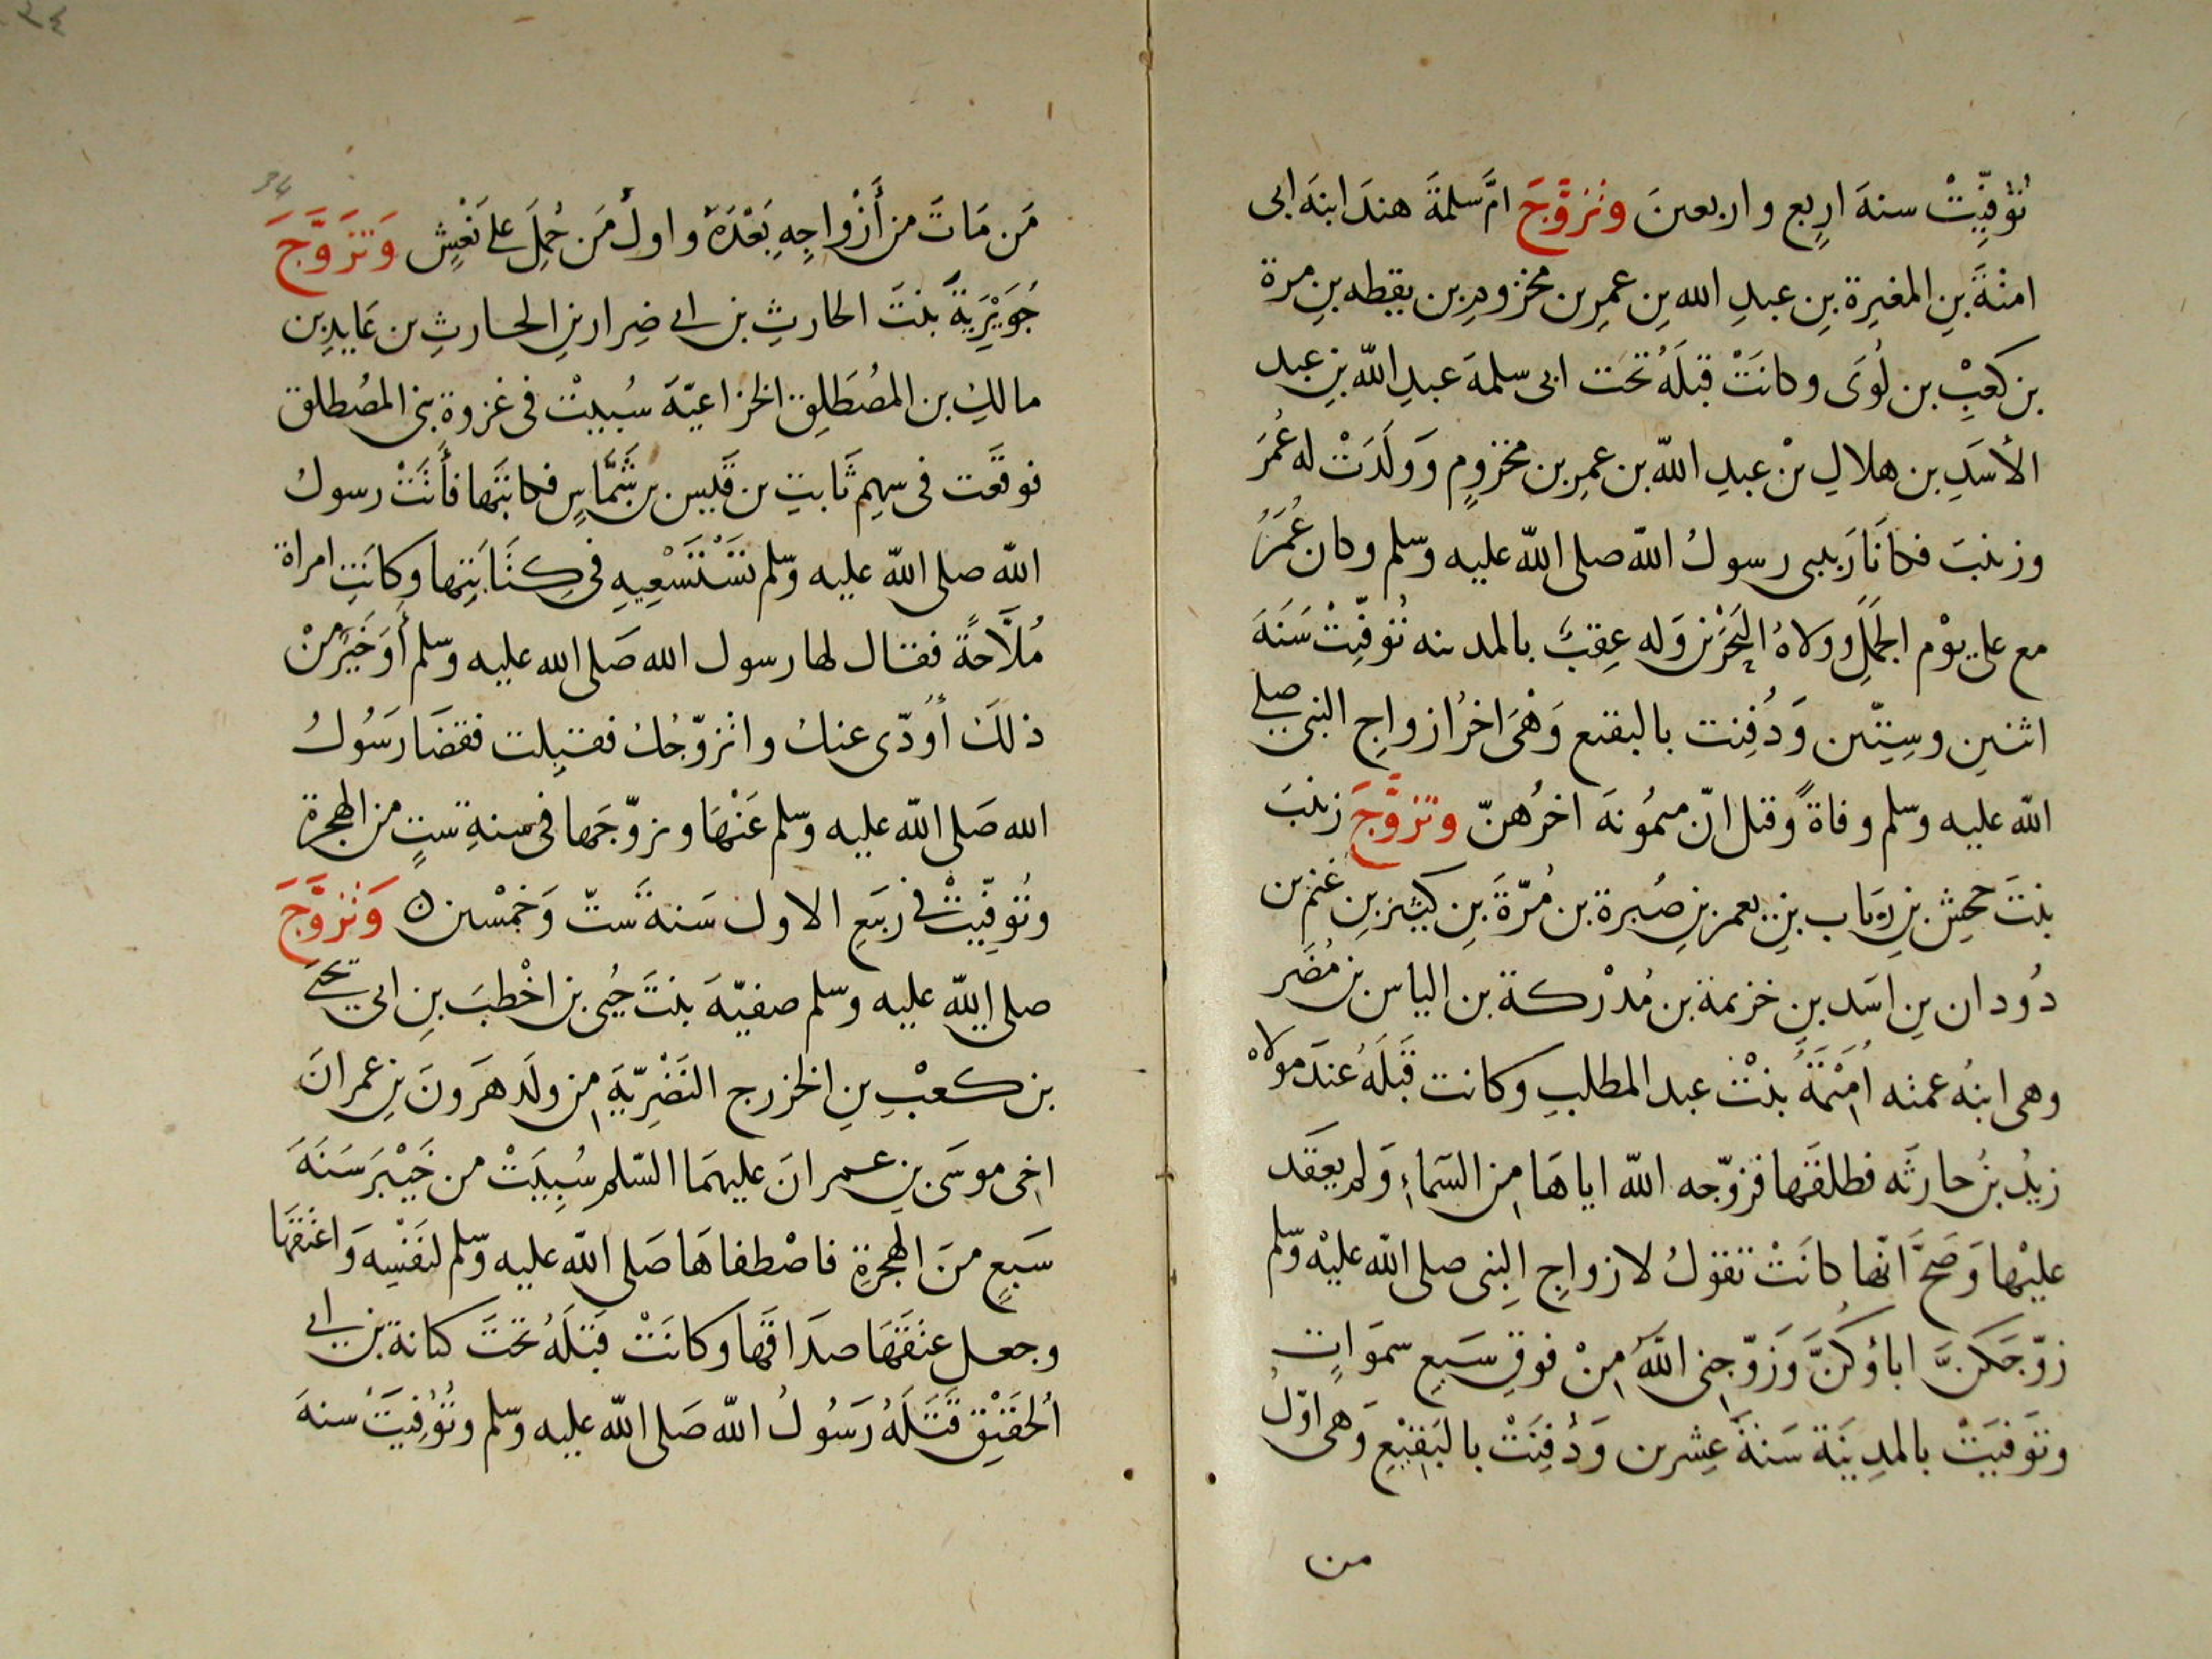 تُوُفِّيَتْ سنةَ اربعٍ واربعينَ وتزوَّجَ امَّ سلمةَ هندَ ابنةَ ابى
امنةَ بنِ المغيرة بنِ عبدِ الله بنِ عمرِ بن مخزومِ بن يقظه بنِ مرة
بن كعبِ بن لُوَى وكانَتْ قبلَهُ تحت ابى سلمةَ عبدِ اللّه بنِ عبد
الأسَدِ بن هلالِ بْنِ عبدِ اللّه بن عمرِ بن مخزومٍ وَوَلَدَتْ له عُمَرَ
وزينبَ فكانَا رَبيبى رسولُ اللّه صلى اللّه عليه وسلم وكان عُمَرُ
مع على يوْم الجَمَلِ وولاهُ البَحْرَيْنِ وَله عِقبٌ بالمدينه تُوفِّيَتْ سَنَةَ
اثنينِ وسِتِّين وَدُفِنت بالبقيع وَهْىَ اخرُ ازواجِ النبى صلى
اللّه عليه وسلم وفاةً وقيل انّ ميمُونةَ اخرُهنّ وتزوَّجَ زينبَ
بنتَ جحشِ بنِ رِيَاب بنِ يعمر بنِ صُبرة بن مُرّةَ بنِ كبير بنِ غنم بن
دُودان بنِ اسَد بنِ خزيمة بن مُدْركة بن الياس بنِ مُضَر
وهى ابنهُ عمته اُمَيْمَةُ بنْتُ عبد المطلبِ وكانت قَبْلَهُ عندَ مولاه
زيدُ بنُ حارثَه فطلقَها فزوّجه اللّه اياهَا مِنَ السّماءِ وَلم يعقَد
عليْها وَصَحَّ انّها كانَتْ تقولُ لازواجِ النبى صلى اللّه عليْه وسلم
زوّجَكنَّ اباؤكُنَّ وَزَوّجنى اللّهُ مِنْ فوقِ سَبعِ سمَوَاتٍ
وتوَفيَتْ بالمدِينَة سَنةَ عِشرين وَدُفِنَتْ بالبَقيْعِ وَهى اوّلُ
من
مَن مَاتَ من أَزْواجِهِ بَعْدَهُ واولُ مَن حُمِلَ على نَعْشٍ وَتَزَوَّجَ
جُوَيْرِيَةَ بنتَ الحارثِ بن ابى ضِرار بنِ الحارثِ بن عَايدِ بن
مالكِ بن المصُطَلِقِ الخزاعيّةَ سُبيتْ فى غزوة بنى المصُطلق
فوقَعت فى سهِمِ ثَابتِ بن قَيس بن شَمَّاسٍ فكاتبَها فأَتَتْ رسولُ
اللّه صلى اللّه عليه وسلم تَسْتَسْعِيهِ فى كِتَابَتِها وكانَتِ امراة
مُلَّاحَةً فقال لها رسول الله صَلى الله عليه وسلم أَوَخَيرٌ منْ
ذلكَ أُوَدّى عنك واتزوّجُك فقبِلت فقضَا رَسُولُ
الله صَلى اللّه عليه وسلم عَنْهَا وتزوّجَها فى سنةِ ستٍ من الهجرة
وتُوفِّيتْ فى رَبيعِ الاول سَنةَ ستّ وَخمْسين ۞ وَتزوَّجَ
صلى اللّه عليه وسلم صفيّةَ بنتَ حُيى بن اخْطبَ بنِ ابى يحيى
بن كعْبِ بنِ الخزرج النَضْرِيّةِ مِن ولَد هَرَونَ بنِ عمرانَ
اخِى موسَى بن عمرانَ عليهمَا السّلم سُبِيَتْ من خَيْبَرَ سَنَةَ
سَبعٍ منَ الهجرةِ فاصْطفاهَا صَلى اللّه عليه وسلم لنفْسِه وَاعتقَها
وجعل عتقَهَا صدَاقَها وكانَتْ قبْلَهُ تحتَ كنانة بن ابى
الحُقَيْقِ قتَلَهُ رَسُولُ اللّه صَلى اللّه عليه وسلم وتُوُفِيَتْ سنةَ